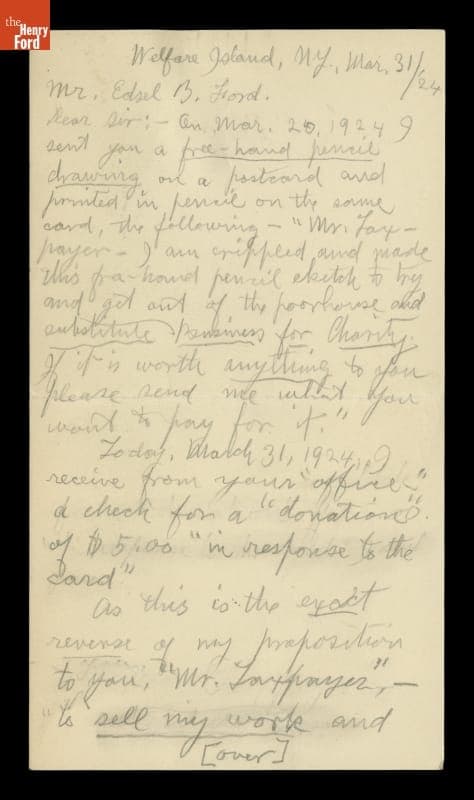 the
Henry
Ford
Welfare Island, NY., Mar. 31/24
Mr. Edsel B. Ford.
Dear Sir:- On Mar. 20, 1924 I
sent you a free-hand pencil
drawing on a postcard and
printed in pencil on the same
card, the following - "Mr. Tax-
payer - I am crippled and made
this fre-hand pencil sketch to try
and get out of the poorhouse and
substitute Business for Charity.
If it is worth anything to you
please send me what you
want to pay for it."
Today, March 31, 1924, I
receive from your "office"
a check for a "donation"
of $5.00 "in response to the
card"
As this is the exact
reverse of my proposition
to you, "Mr. Taxpayer", -
"to sell my work and
[over]